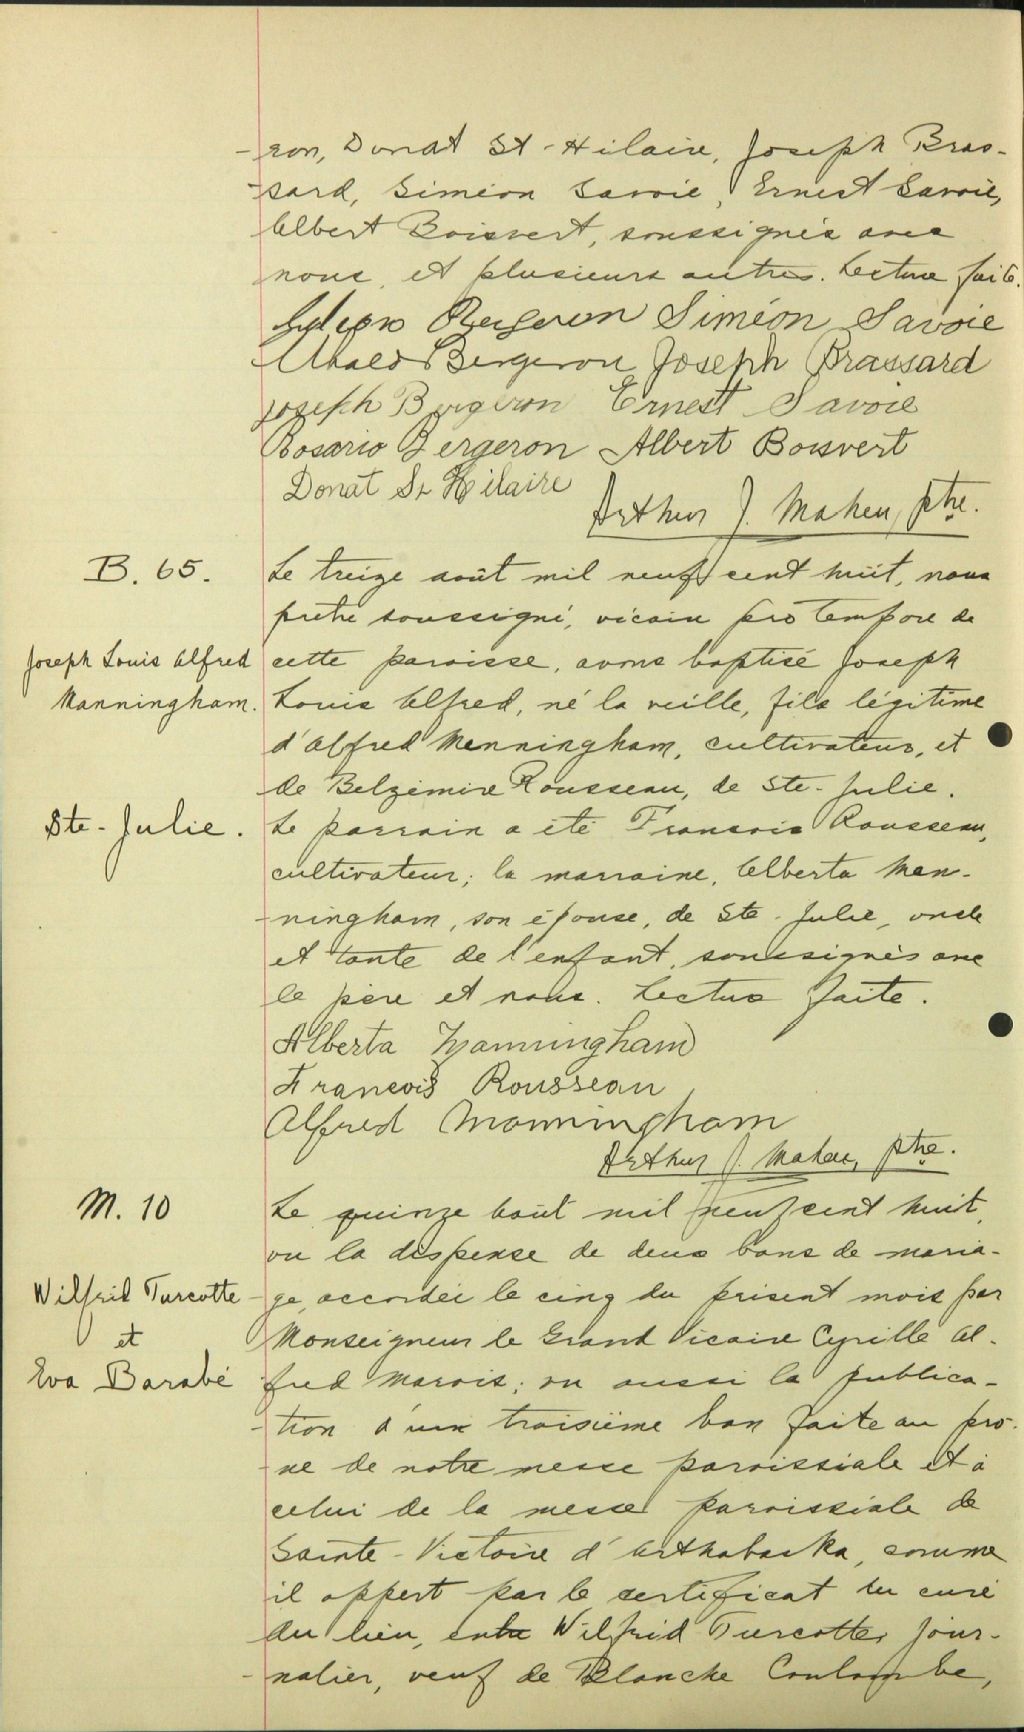 -ron, Donat St-Hilaire, Joseph Bras-
-sard, Siméon Savoie, Ernest Savoie,
Albert Boisvert, soussignés avec
nous, et plusieurs autres. Lecture faite.
Bergeron Siméon Savoie
Bergeron Joseph Brassard
Joseph Bergeron Ernest Savoie
Rosario Bergeron Albert Boisvert
Donat St Hilaire
Arthur J. Maheu, ptre.
B. 65.
Joseph Louis Alfred
Manningham.
Ste-Julie.
Le treize août mil neuf cent huit, nous
prêtre soussigné, vicaire pro tempore de
cette paroisse, avons baptisé Joseph
Louis Alfred, né la veille, fils légitime
d'Alfred Menningham, cultivateur, et
de Belzémire Rousseau, de Ste-Julie.
Le parrain a été François Rousseau,
cultivateur; la marraine, Alberta Man-
-ningham, son épouse, de Ste-Julie, oncle
et tante de l'enfant, soussignés avec
le père et nous. Lecture faite.
Alberta Manningham
Francois Rousseau
Alfred Manningham
Arthur J. Maheu, ptre.
M. 10
Wilfrid Turcotte
et
Eva Barabé
Le quinze août mil neuf cent huit,
vu la dispense de deux bans de maria-
-ge, accordée le cinq du présent mois par
Monseigneur le Grand Vicaire Cyrille Al-
fred Marois; vu aussi la publica-
-tion d'un troisième ban faite au prô-
-ne de notre messe paroissiale et à
celui de la messe paroissiale de
Sainte-Victoire d'Arthabaska, comme
il appert par le certificat du curé
du lieu, entre Wilfrid Turcotte, jour-
-nalier, veuf de Blanche Coulombe,